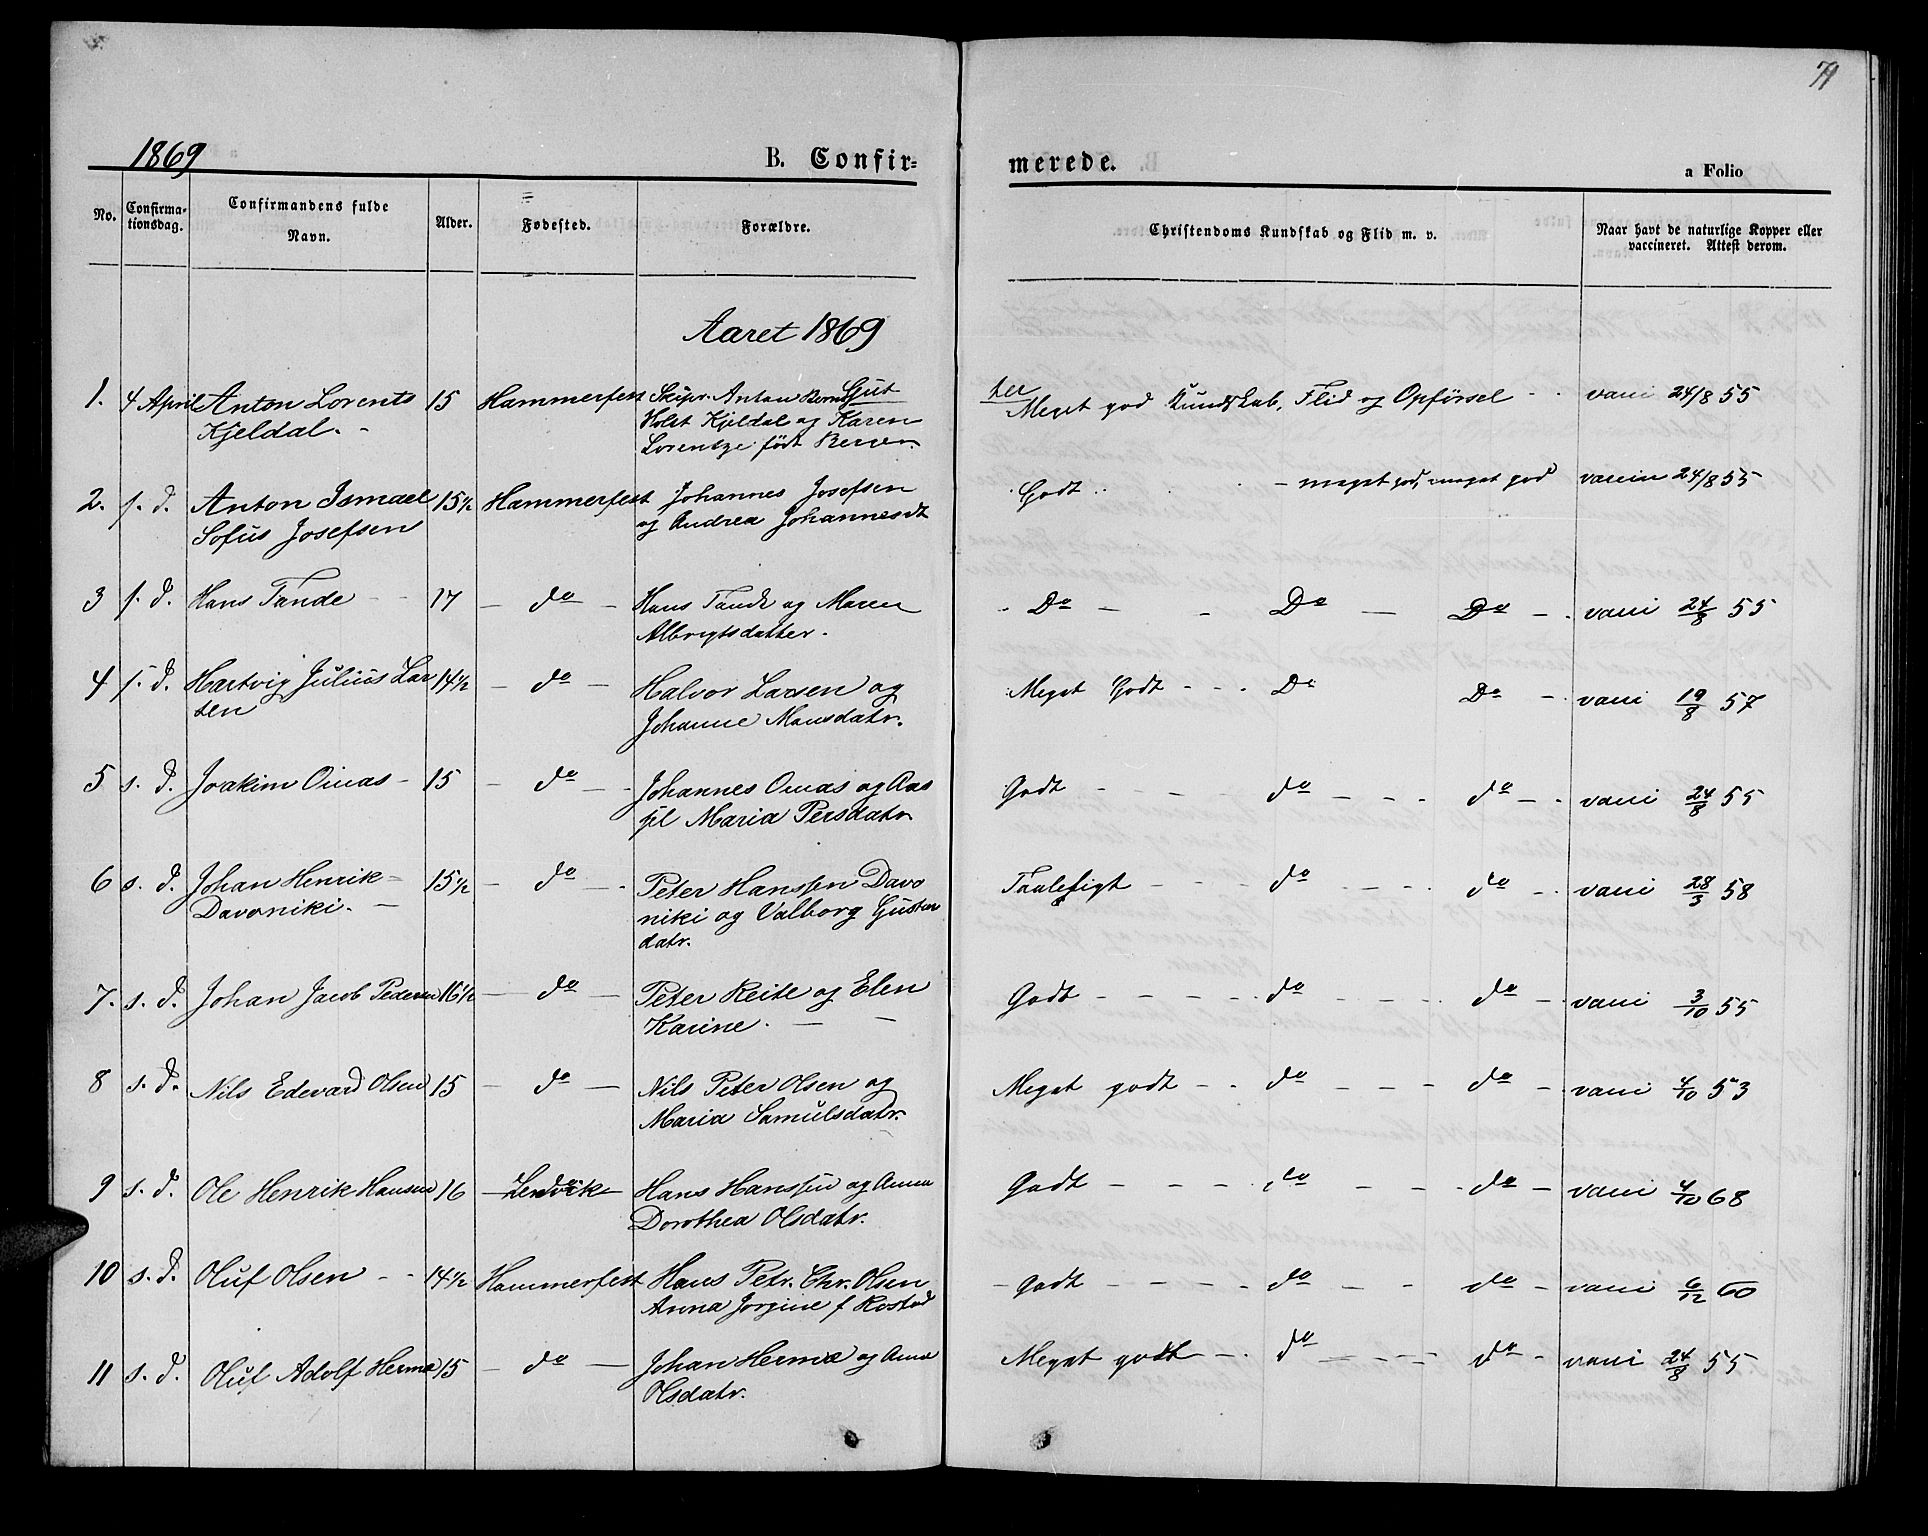 71
1869
B. Confir=
merede.
a Folio
No.
Confirma-
tionsdag.
Confirmandens fulde
Navn.
Alder.
Fødested.
Forældre.
Christendoms Kundskab og Flid m. v.
Naar havt de naturlige Kopper eller
vaccineret. Attest derom.
Aaret 1869
1. 4 April Anton Lorents 15 Hammerfest Skipr. Anton Bernt Gut Meget god Kundskab, Flid og Opførsel - - vacci 24/8 55
Kjeldal. - Holst Kjeldal og Karen
Lorentze født Berger.
2. s. d. Anton Ismael 15½ Hammerfest Johannes Josefsen Godt - meget god, meget god vaccin 24/8 55
Sofus Josefsen og Andrea Johannesdt
3 s. d. Hans Tande - - 17 - do - Hans Tande og Maren - Do - - Do - Do - vacci 24/8 55
Albregtsdatter.
4 s. d. Hartvig Julius Lar 14½ - do - Halvor Larsen og Meget Godt - - - Do Do - vacci 19/8 57
sen Johanne Mansdatr.
5 s. d. Joakim Oinas - 15 - do - - Johannes Oinas og Aas Godt - - - - do - - - do - - vacci 24/8 55
sjel Maria Persdatr
6 s. d. Johan Henrik - 15½ - do - - Peter Hanssen Davo Taaleligt - - - do - - - do - - vacci 28/3 58
Davoniki. - niki og Valborg Gustav
datr.
7. s. d. Johan Jacob Pedersen 16½ - do - Peter Reite og Elen Godt - - - - do - - - do - - vacci 3/10 55
Karine. - -
8 s. d. Nils Edevard Olsen 15 - do - Nils Peter Olsen og Meget godt - - do - - - do - vacci 4/10 53
Maria Samulsdatr.
9 s. d. Ole Henrik Hansen 16 - Lerdvik - Hans Hanssen og Anna Godt - - - do - - - do - vacci 4/10 68
Dorothea Olsdatr.
10 s. d. Oluf Olsen - - 14½ Hammerfest Hans Petr. Chr. Olsen - Godt - - - - do - - do - vacci 6/12 60
Anna Jorgine f Rostad
11 s. d. Oluf Adolf Herma 15 - do - Johan Herma og Anna Meget godt - - do - - - - do - - vacci 24/8 55
Olsdatr.